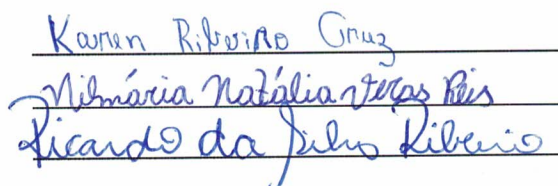 Karen Ribeiro Cruz
Nilmária Natália Veras Reis
Ricardo da Silva Ribeiro